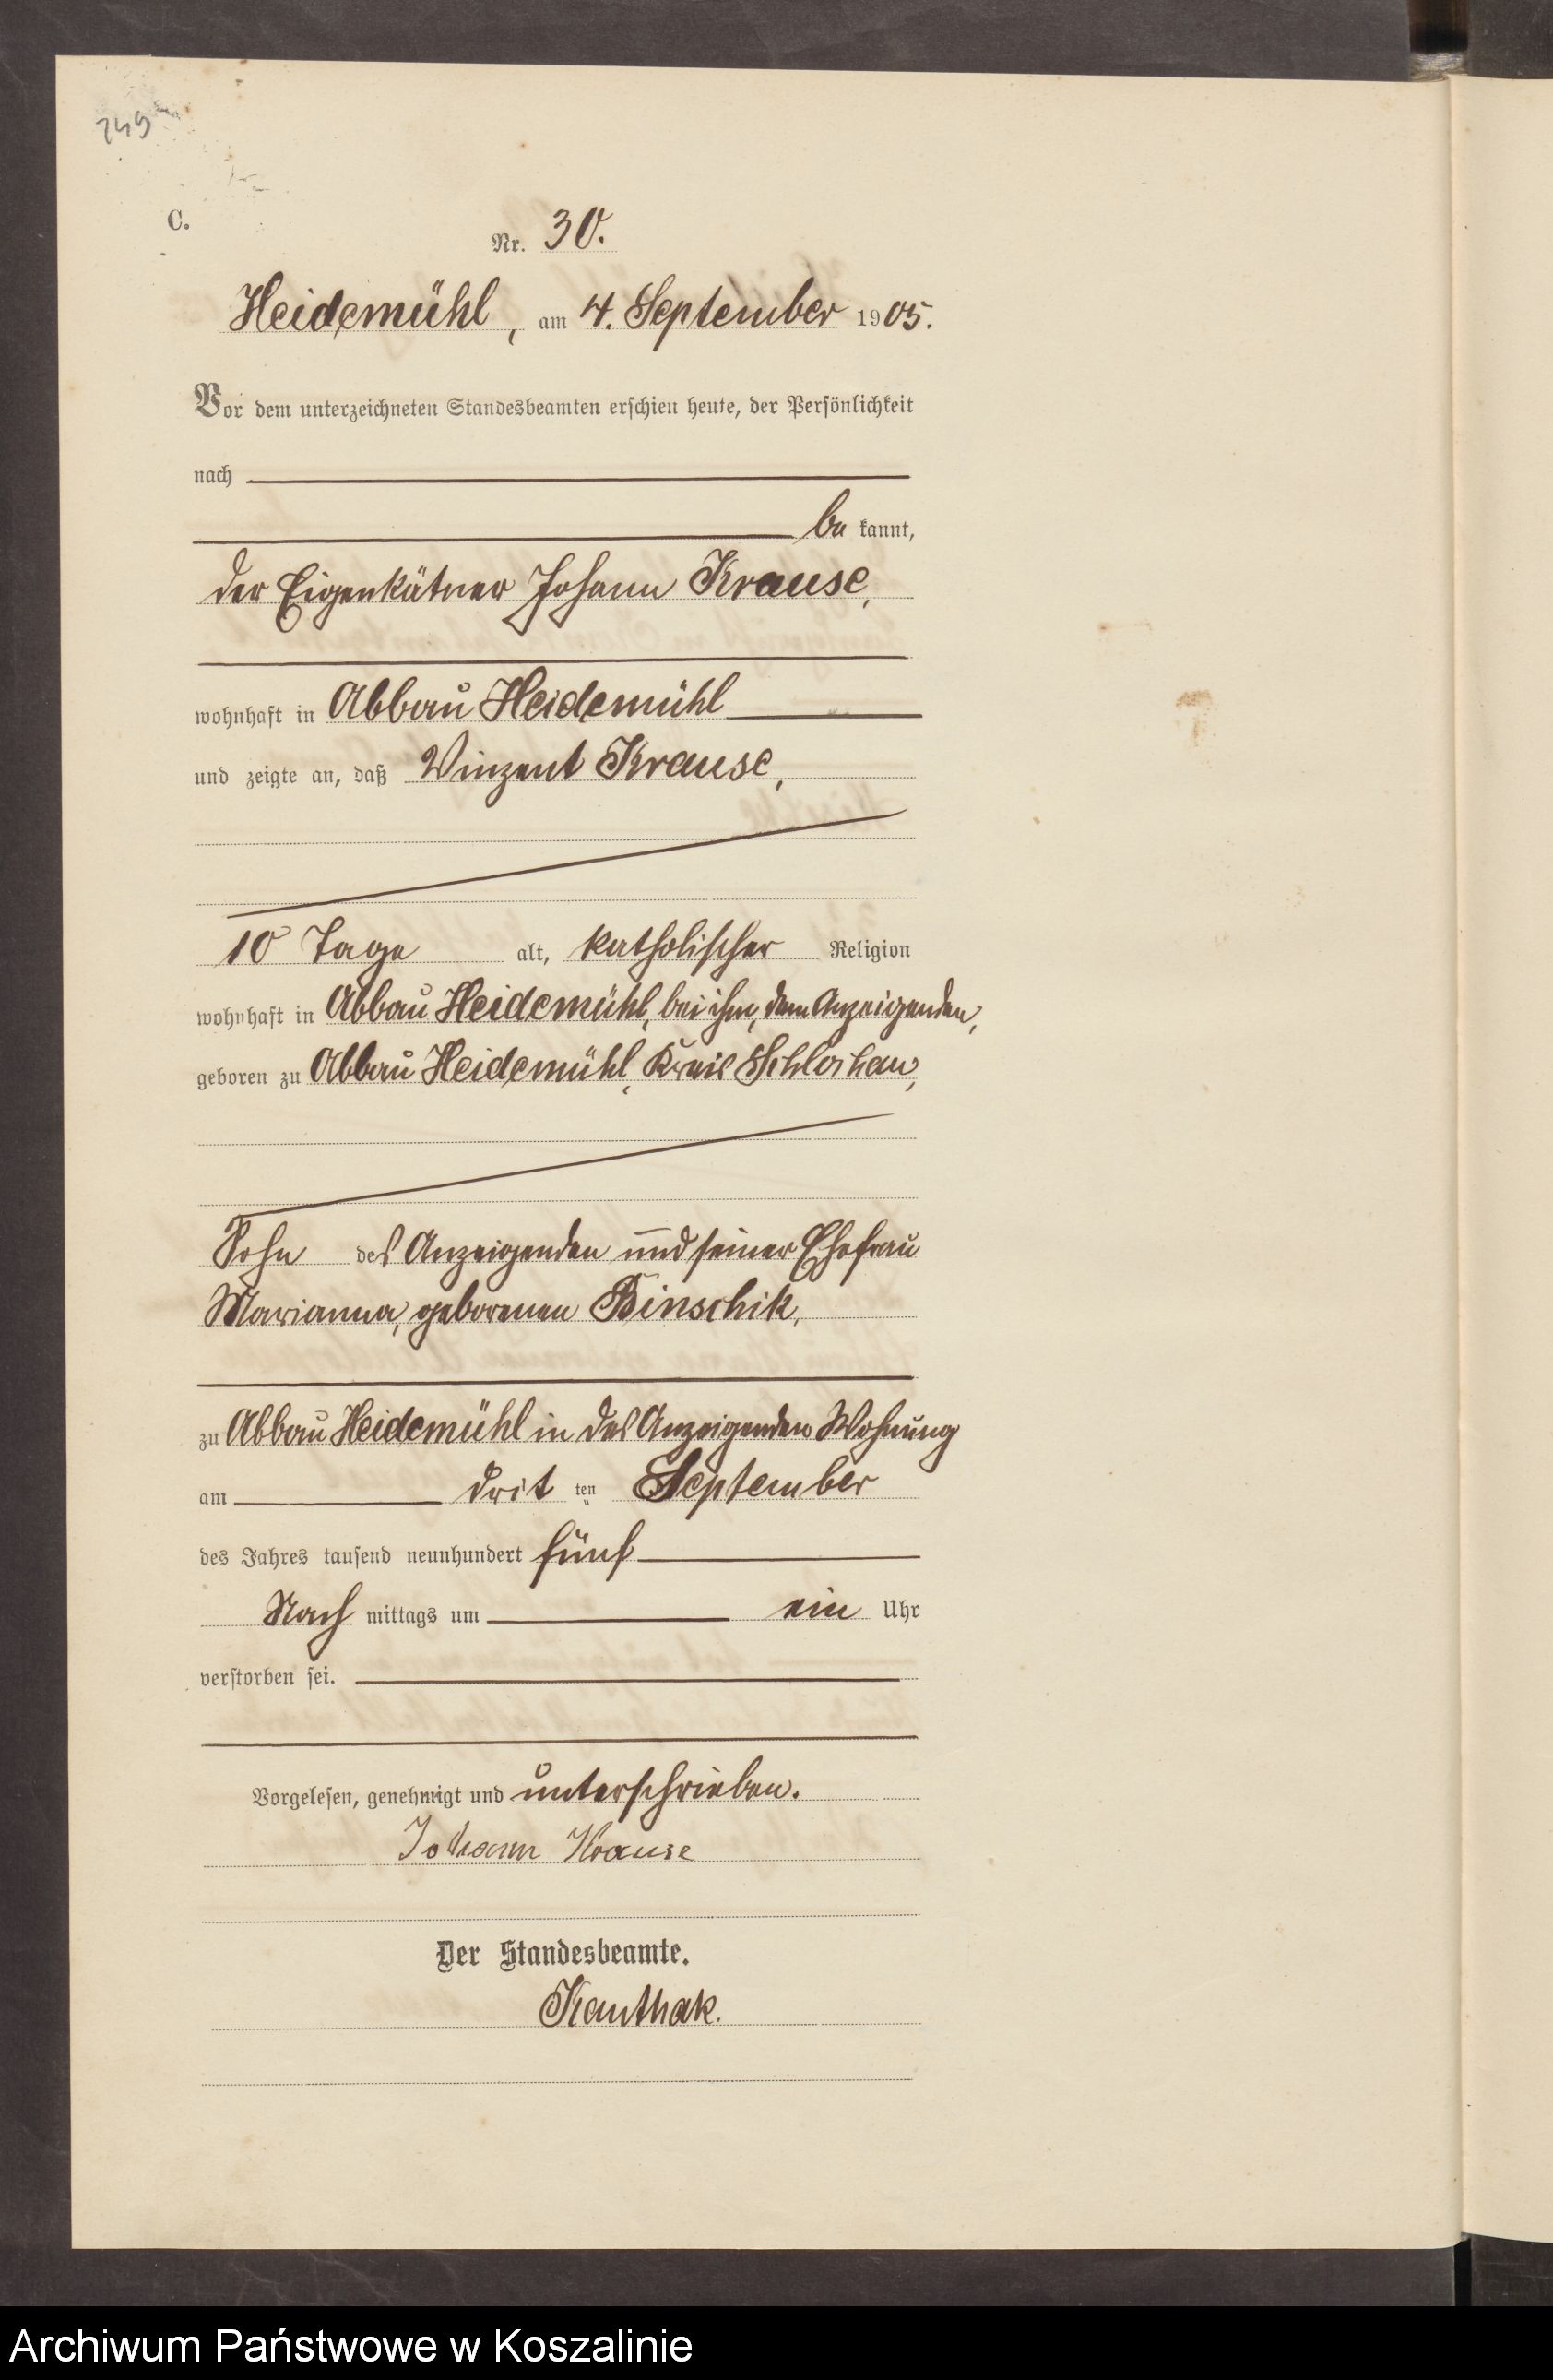 249
C.
Nr. 30.
Heidemühl, am 4. September 1905.
Vor dem unterzeichneten Standesbeamten erschien heute, der Persönlichkeit
nach
be kannt,
der Eigenkätner Johann Krause,
wohnhaft in Abbau Heidemühl
und zeigte an, daß Vinzent Krause,
10 Tage alt, katholischer Religion
wohnhaft in Abbau Heidemühl, bei ihm, dem Anzeigenden,
geboren zu Abbau Heidemühl, Kreis Schlochau,
Sohn des Anzeigenden und seiner Ehefrau
Marianna, geborenen Binschik,
zu Abbau Heidemühl in des Anzeigenden Wohnung
am drit ten September
des Jahres tausend neunhundert fünf
Nach mittags um ein Uhr
verstorben sei.
Vorgelesen, genehmigt und unterschrieben.
Johann Krause
Der Standesbeamte.
Kanthak.
Archiwum Państwowe w Koszalinie